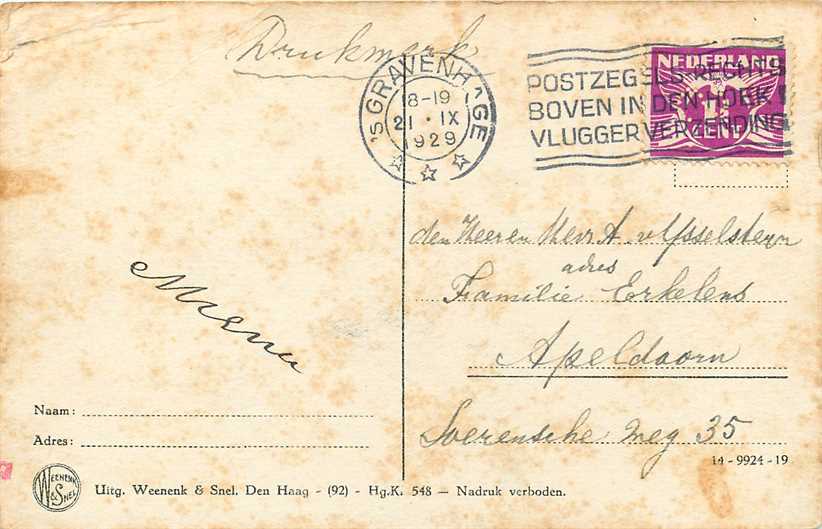 Drukwerk
'S GRAVENHAGE
8-19
21 · IX
1929
POSTZEGELS RECHTS
BOVEN IN DEN HOEK
VLUGGER VERZENDING
NEDERLAND
CENT
den Heer en Mevr A. v. IJsselsteyn
adres
Familie Erkelens
Apeldoorn
Soerensche weg 35
Naam:
Adres:
14-9924-19
WEENENK & SNEL
Uitg. Weenenk & Snel. Den Haag - (92) - Hg.K. 548 — Nadruk verboden.